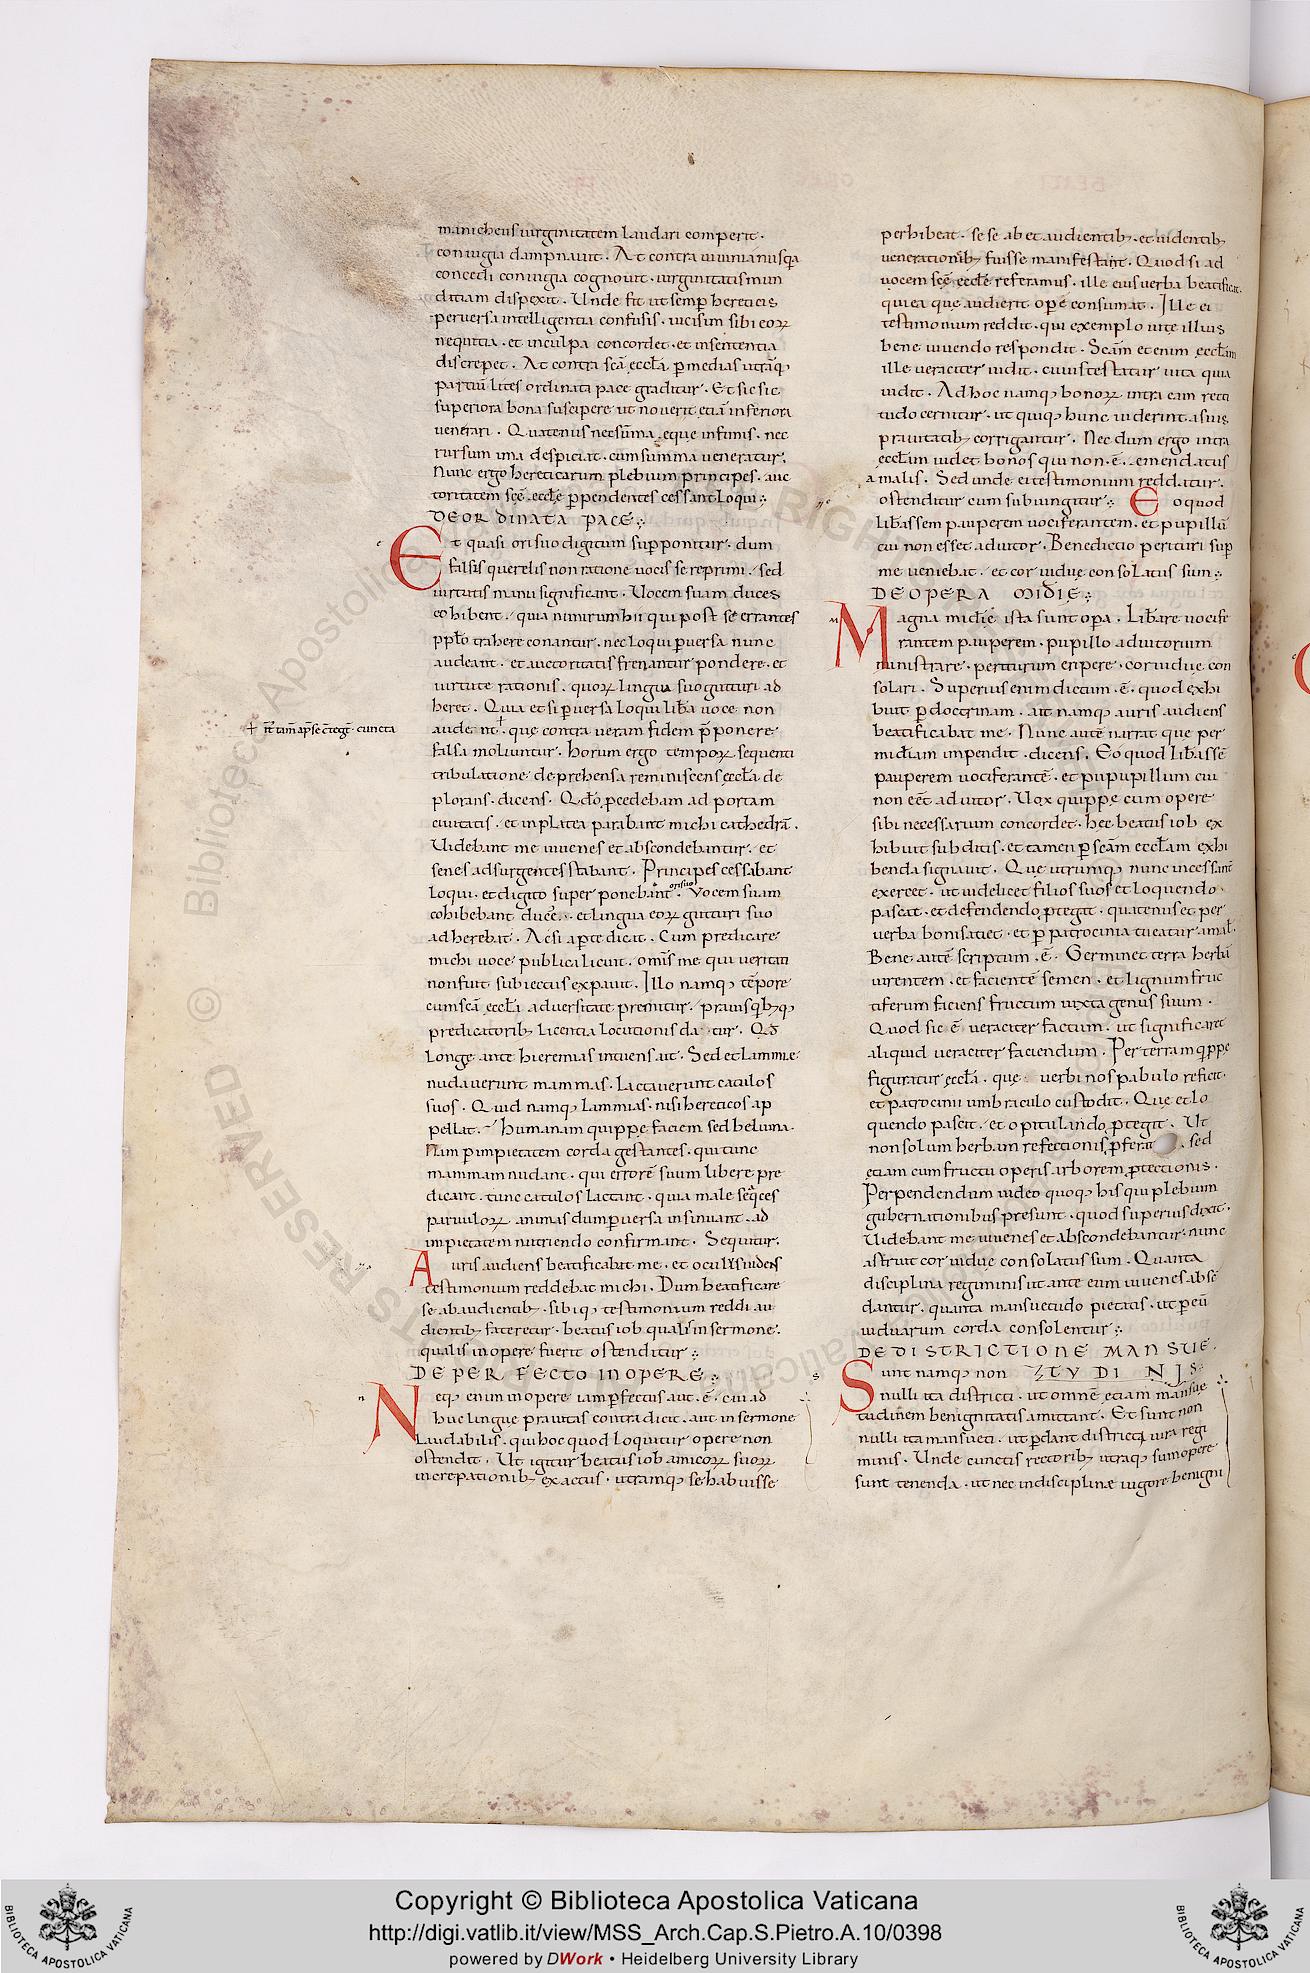 manicheus uirginitatem laudari comperit.
coniugia dampnauit. At contra iouinianus quia
concedi coniugia cognouit. uirginitatis mun
ditiam dispexit. Unde fit ut semp hereticis
peruersa intelligentia confusis. uicisim sibi eoꝝ
nequitia. et in culpa concordet. et in sententia
discrepet. At contra scā ęccła. p medias utrāq;
partiū lites ordinata pace graditur. Et sic scit
superiora bona suscipere. ut nouerit etiā inferiora
uenerari. Quatenus nec sūma ęque infimis. nec
rursum ima despiciat. cum summa ueneratur.
Nunc ergo hereticarum plebium principes. auc
toritatem scę ęccłę ppendentes cessant loqui.
DE ORDINATA PACE
Et quasi ori suo digitum supponitur. dum
falsis querelis non ratione uocis se reprimi. sed
uirtutis manu significant. Uocem suam duces
cohibent. quia nimirum hii qui post se errantes
ppło trahere conantur. nec loqui puersa nunc
audeant. et auctoritatis frenantur pondere. et
uirtute rationis. quoꝝ lingua suo gutturi ad
heret. Quia et si puersa loqui libera uoce non
audent. que contra ueram fidem pponere
falsa moliuntur. Horum ergo tempoꝝ sequenti
tribulatione deprehensa reminiscens ęccła. de
plorans. dicens. Qdo pcedebam ad portam
ciuitatis. et in platea parabant michi cathedrā.
Uidebant me iuuenes et abscondebantur. et
senes adsurgentes stabant. Principes cessabant
loqui. et digito superponebant ori suo. Vocem suam
cohibebant duces. et lingua eoꝝ gutturi suo
adherebat. Ac si apte dicat. Cum predicare
michi uoce publica licuit. omīs me qui ueritati
non fuit subiectus expauit. Illo namq; tēpore
cum scā ęccła aduersitate premitur. prauis quibusq;
predicatorib; licentia locutionis datur. Qd
longe ante hieremias intuens ait. Sed et lammie
nudauerunt mammas. lactauerunt catulos
suos. Quid namq; lammias. nisi hereticos ap
pellat. humanam quippe faciem sed beluina.
Nam p impietatem corda gestantes. qui tunc
mammam nudant. qui errorē suum libere pre
dicant. tunc catulos lactant. quia male sequaces
paruuloꝝ animas dum puersa insinuant. ad
impietatem nutriendo confirmant. Sequitur.
Auris audiens beatificabat me. et oculus uidens
testimonium reddebat michi. Dum beatificare
se ab audientib;. sibiq; testimonium reddi au
dientib; fateretur. beatus iob qualis in sermone.
qualis in opere fuerit ostenditur
DE PERFECTO IN OPERE
Neq; enim in opere iam pfectus aut. ē. cui ad
huc lingue prauitas contradicit. aut in sermone
laudabilis. qui hoc quod loquitur opere non
ostendit. Ut igitur beatus iob amicoꝝ suoꝝ
increpationib; exactus. utramq; se habuisse
perhibeat. se se ab et audientib;. et uidentib;
uenerationib; fuisse manifestant. Quod si ad
uocem scę ęccłę referamus. ille eius uerba beatificat.
qui ea que audierit opere consumat. Ille ei
testimonium reddit. qui exemplo uite illius
bene uiuendo respondit. Scam etenim ęccłam
ille ueraciter uidit. cuius testatur uita quia
uidit. Ad hoc namq; bonoꝝ intra eam recti
tudo cernitur. ut quiq; hunc uiderint a suis
prauitatib; corrigantur. Nec dum ergo intra
ęccłam uidet bonos qui non. ē. emendatus
a malis. Sed unde ei testimonium redditur.
ostenditur cum subiungitur. Eo quod
liberassem pauperem uociferantem. et pupillū
cui non esset adiutor. Benedictio perituri sup
me ueniebat. et cor uidue consolatus sum
DE OPERA MIDIE
Magna midię ista sunt opera. Liberare uocife
rantem pauperem. pupillo adiutorium
ministrare. periturum eripere. cor uidue con
solari. Superius enim dictum. ē. quod exhi
buit p doctrinam. ait namq; auris audiens
beatificabat me. Nunc autē narrat que per
midiam impendit. dicens. Eo quod liberassē
pauperem uociferantē. et pupupillum cui
non eēt adiutor. Uox quippe cum opere
sibi necessarium concordet. hec beatus iob ex
hibuit subditis. et tamen p scam ęccłam exhi
benda signauit. Que utrumq; nunc incessant
exercet. ut uidelicet filios suos et loquendo
pascat. et defendendo ptegit. quatenus et per
uerba boni satiet. et p patrocinia tueatur a mal.
Bene autē scriptum. ē. Germinet terra herbā
uirentem. et facientē semen. et lignum fruc
tiferum faciens fructum iuxta genus suum.
Quod sic ē ueraciter factum. ut significaret
aliquid ueraciter faciendum. Per terram quippe
figuratur ęccła. que uerbi nos pabulo reficit.
et patrocinii umbraculo custodit. Que et lo
quendo pascit. et opitulando ptegit. Ut
non solum herbam refectionis pferat. sed
etiam cum fructu operis arborem ptectionis.
Perpendendum uideo quoq; his qui plebium
gubernationibus presunt. quod superius dixit.
Uidebant me iuuenes et abscondebantur. nunc
astruit cor uidue consolatus sum. Quanta
disciplina regiminis ut ante eum iuuenes abscē
dantur. quanta mansuetudo pietatis. ut p eū
uiduarum corda consolentur
DE DISTRICTIONE MANSUE
TUDINIS
Sunt namq; non
nulli ita districti. ut omnē etiam mansue
tudinem benignitatis amittant. Et sunt non
nulli ita mansueti. ut pdant districti iura regi
minis. Unde cunctis rectorib; utraq; summopere
sunt tenenda. ut nec in disciplinæ uigore benigni
Copyright © Biblioteca Apostolica Vaticana
http://digi.vatlib.it/view/MSS_Arch.Cap.S.Pietro.A.10/0398
powered by DWork • Heidelberg University Library
BIBLIOTECA APOSTOLICA VATICANA
BIBLIOTECA APOSTOLICA VATICANA